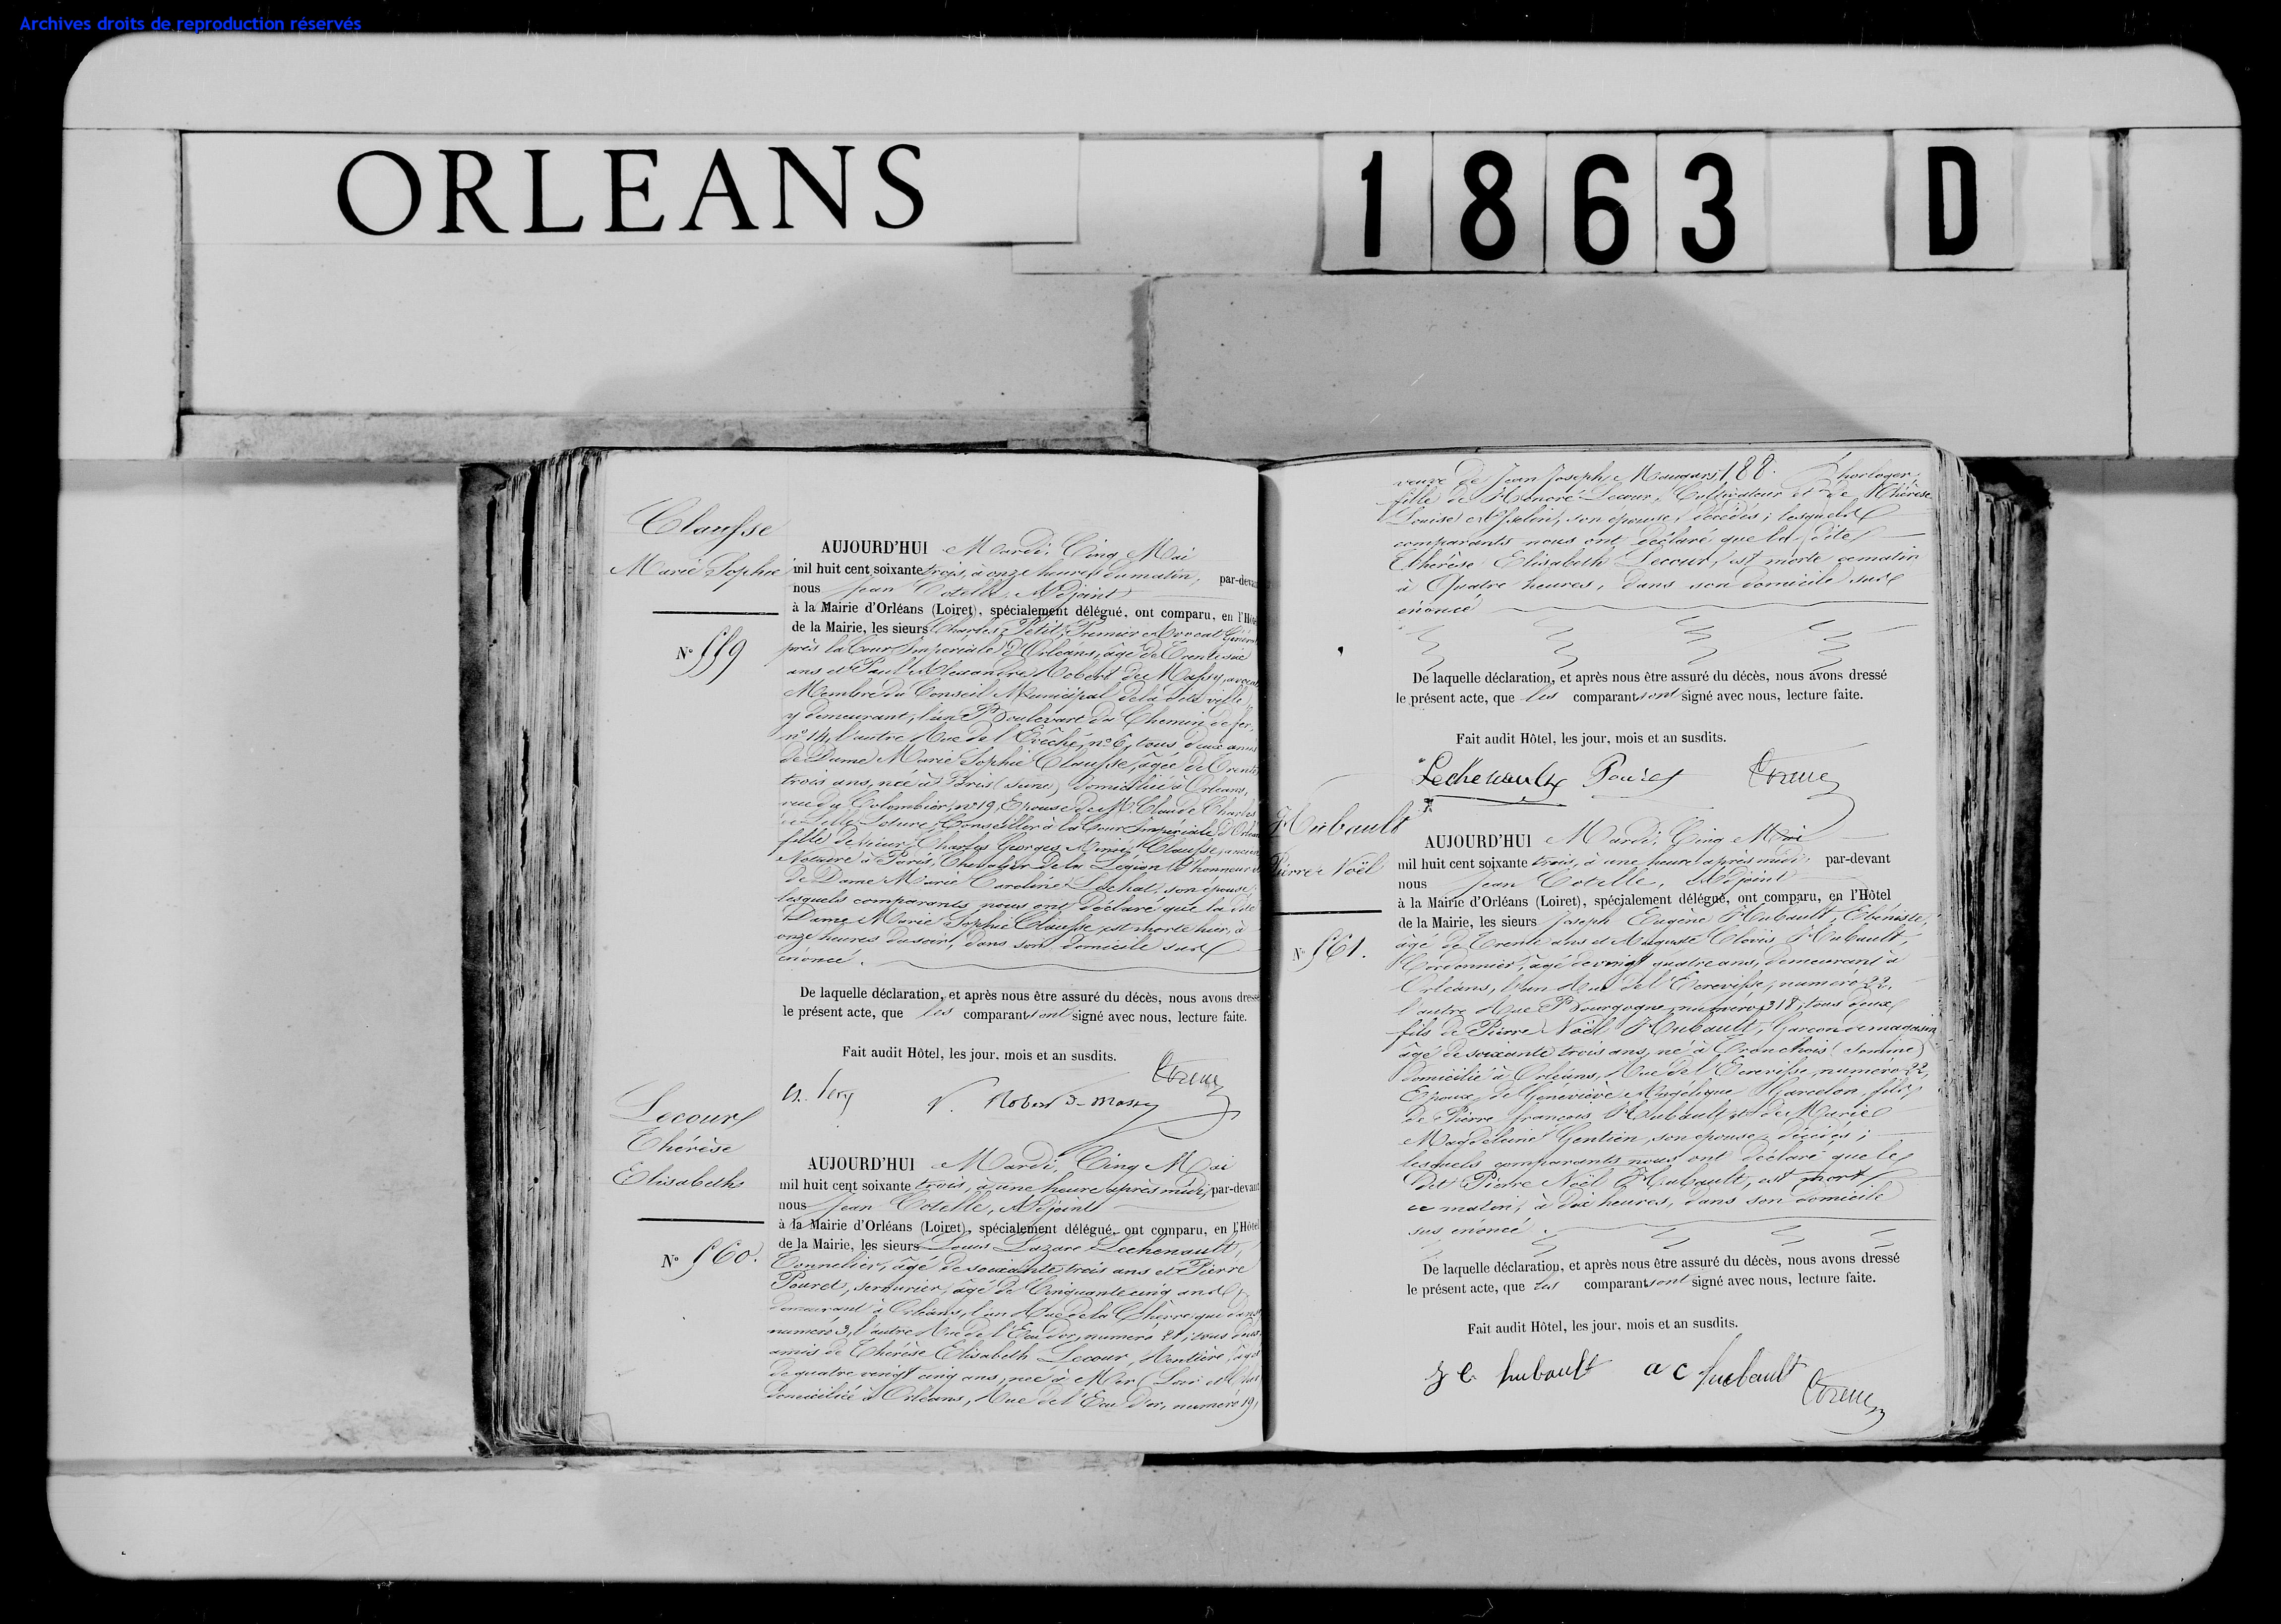 Archives droits de reproduction réservés
ORLEANS
1863 D
Claufse
Marie Sophie
N° 559
AUJOURD'HUI Mardi, Cinq Mai
mil huit cent soixante trois, à onze heures du matin, par-devant
nous Jean Cotelle, Adjoint
à la Mairie d'Orléans (Loiret), spécialement délégué, ont comparu, en l'Hôtel
de la Mairie, les sieurs Charles Petit, Premier Avocat Général
près la Cour Impériale d'Orléans, âgé de Trente six
ans et Paul Alexandre Robert de Massy, avocat
Membre du Conseil Municipal de la dite ville,
y demeurant, l'un Boulevart du Chemin de fer,
n° 14, l'autre Rue de l'Evêché, n° 6, tous deux amis
de Dame Marie Sophie Claufse, agée de Trente
trois ans, née à Paris (Seine) domiciliée à Orléans,
rue du Colombier, n° 19, Epouse de Mr. Claude Charles
Conseiller à la Cour Impériale d'Orléans
fille de sieur Charles Georges Claufse, ancien
Notaire à Paris, Chevalier de la Légion d'honneur et
de Dame Marie Caroline son épouse;
lesquels comparants nous ont déclaré que la dite
Dame Marie Sophie Claufse est morte hier, à
onze heures du soir, dans son domicile sus
énoncé.
De laquelle déclaration, et après nous être assuré du décès, nous avons dressé
le présent acte, que les comparants ont signé avec nous, lecture faite.
Fait audit Hôtel, les jour, mois et an susdits.
P. Robert de Massy
Lecour
Thérèse
Elisabeth
N° 560.
AUJOURD'HUI Mardi, Cinq Mai
mil huit cent soixante trois, à une heure après midi, par-devant
nous Jean Cotelle, Adjoint
à la Mairie d'Orléans (Loiret), spécialement délégué, ont comparu, en l'Hôtel
de la Mairie, les sieurs Louis Lazare Lechenault,
Tonnelier, âgé de soixante trois ans et Pierre
Pouret, serrurier, âgé de Cinquante cinq ans
demeurant à Orléans, l'un Rue de la Chèvre qui danse,
numéro 3, l'autre Rue de l'Eau d'or, numéro 21, tous deux
amis de Thérèse Elisabeth Lecour, Rentière, âgée
de quatre vingt cinq ans, née à Mer (Loir et Cher)
domiciliée à Orléans, Rue de l'Eau d'or, numéro 19,
188.
veuve de Jean Joseph horloger,
fille de Honoré Lecour, Cultivateur et de Thérèse
Louise Asselin, son épouse, décédés; lesquels
comparants nous ont déclaré que la dite
Thérèse Elisabeth Lecour, est morte ce matin
à Quatre heures, dans son domicile sus
énoncé
De laquelle déclaration, et après nous être assuré du décès, nous avons dressé
le présent acte, que les comparants ont signé avec nous, lecture faite.
Fait audit Hôtel, les jour, mois et an susdits.
Lechenault Pouret
Hubault
Pierre Noël
N° 561.
AUJOURD'HUI Mardi, Cinq Mai
mil huit cent soixante trois, à une heure après midi, par-devant
nous Jean Cotelle, Adjoint
à la Mairie d'Orléans (Loiret), spécialement délégué, ont comparu, en l'Hôtel
de la Mairie, les sieurs Joseph Eugène Hubault, Ebéniste,
âgé de Trente ans et Auguste Clovis Hubault,
Cordonnier, âgé de vingt quatre ans, demeurant à
Orléans, l'un Rue de l'Ecrevisse, numéro 22,
l'autre Rue Bourgogne, numéro 318, tous deux
fils de Pierre Noël Hubault, Garçon de magasin,
âgé de soixante trois ans, né à Tronchois (Somme)
domicilié à Orléans, Rue de l'Ecrevisse, numéro 22,
Epoux de Geneviève Angélique Garcelon, fils
de Pierre françois Hubault, et de Marie
Magdeleine Gentien, son épouse, décédés;
lesquels comparants nous ont déclaré que le
dit Pierre Noël Hubault, est mort
ce matin, à dix heures, dans son domicile
sus énoncé.
De laquelle déclaration, et après nous être assuré du décès, nous avons dressé
le présent acte, que les comparants ont signé avec nous, lecture faite.
Fait audit Hôtel, les jour, mois et an susdits.
J E hubault a c hubault